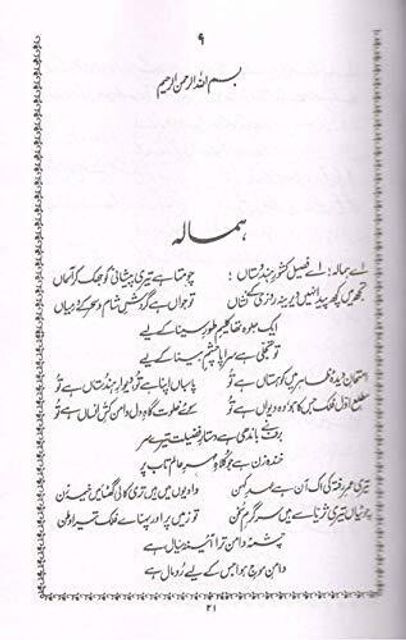 ۹
بسم اللہ الرحمن الرحیم
ہمالہ
اے ہمالہ! اے فصیلِ کشورِ ہندوستاں! چومتا ہے تیری پیشانی کو جھک کر آسماں
تجھ میں کچھ پیدا نہیں دیرینہ روزی کے نشاں تو جواں ہے گردشِ شام و سحر کے درمیاں
ایک جلوہ تھا کلیمِ طورِ سینا کے لیے
تو تجلی ہے سراپا چشمِ بینا کے لیے
امتحانِ دیدۂ ظاہر میں کوہستاں ہے تُو پاسباں اپنا ہے تُو دیوارِ ہندستاں ہے تُو
مطلعِ اول فلک جس کا ہو وہ دیواں ہے تُو سوئے خلوت گاہِ دل دامن کشِ انساں ہے تُو
برف نے باندھی ہے دستارِ فضیلت تیرے سر
خندہ زن ہے جو کلاہِ مہرِ عالم تاب پر
تیری عمرِ رفتہ کی اک آن ہے عہدِ کہن وادیوں میں ہیں تری کالی گھٹائیں خیمہ زن
چوٹیاں تیری ثریا سے ہیں سرگرمِ سخن تو زمیں پر اور پہنائے فلک تیرا وطن
چشمۂ دامن ترا آئینۂ سیال ہے
دامنِ موجِ ہوا جس کے لیے رومال ہے
۲۱